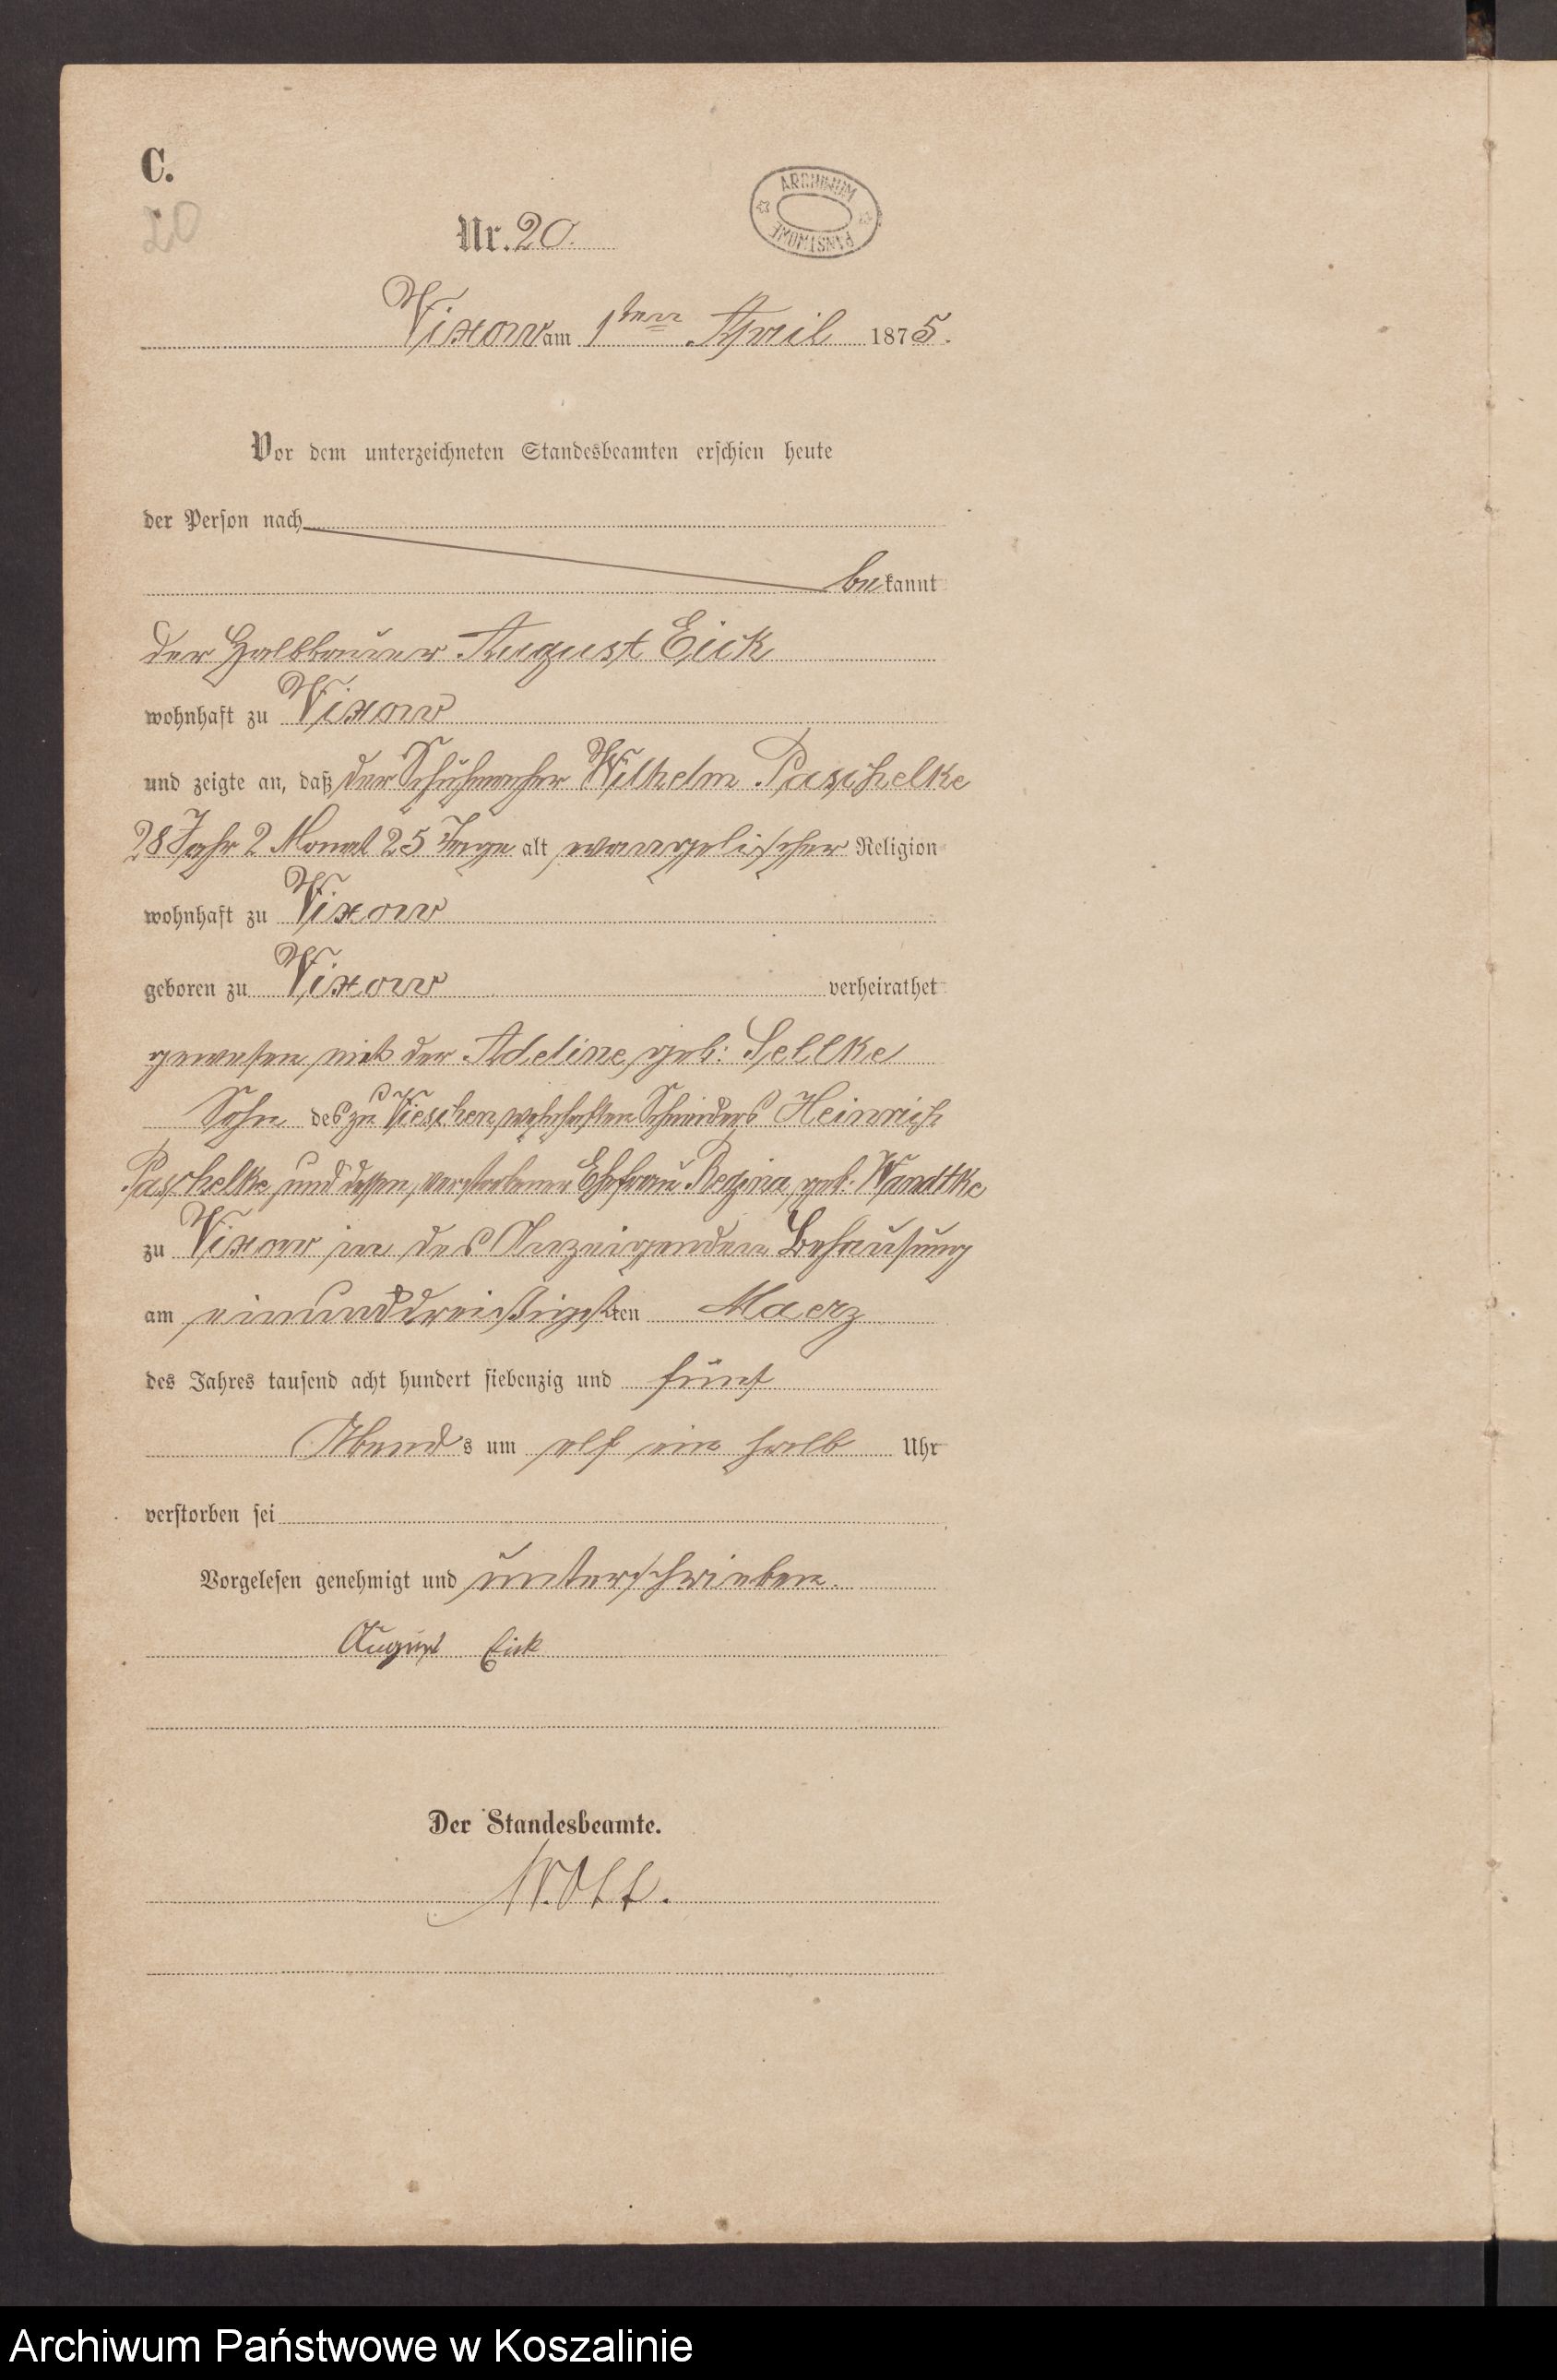 C.
20
Nr. 20.
ARCHIWUM
PAŃSTWOWE
Vixow am 1ten April 1875.
Vor dem unterzeichneten Standesbeamten erschien heute
der Person nach
bekannt
der Halbbauer August Eick
wohnhaft zu Vixow
und zeigte an, daß der Schuhmacher Wilhelm Paschelke
28 Jahr 2 Monat 25 Tage alt evangelischer Religion
wohnhaft zu Vixow
geboren zu Vixow verheirathet
gewesen mit der Adeline, geb: Sellke
Sohn des zu Vieschen wohnhaften Schneiders Heinrich
Paschelke und dessen verstorbener Ehefrau Regina, geb. Wandtke
zu Vixow in des Anzeigenden Behausung
am einunddreißigsten Maerz
des Jahres tausend acht hundert siebenzig und fünf
Abends um elf ein halb Uhr
verstorben sei
Vorgelesen genehmigt und unterschrieben.
August Eick
Der Standesbeamte.
Archiwum Państwowe w Koszalinie